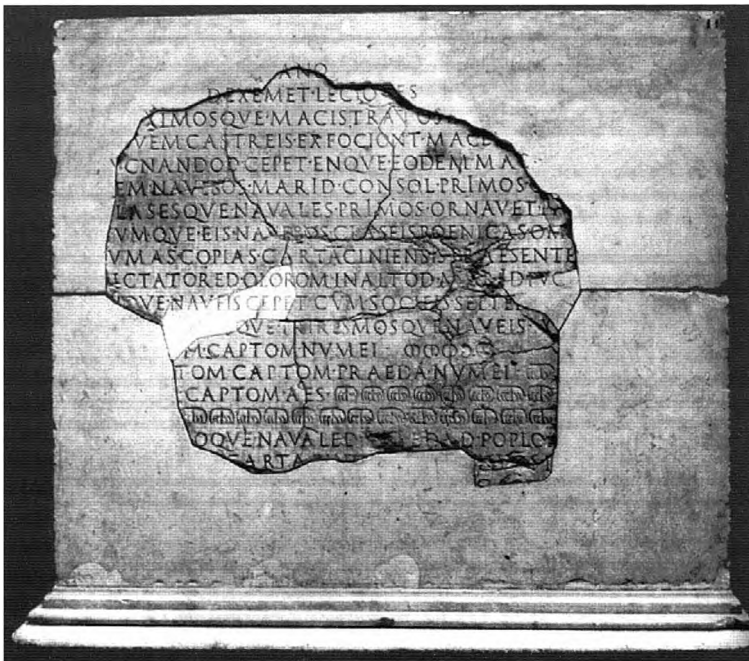 ANO
D·EXEMET·LECIONES
XIMOSQVE·MACISTRATOS
VEM·CASTREIS·EXFOCIONT·MACEL
VCNANDOD·CEPET·ENQVE·EODEM·MAC
EM·NAVEBOS·MARID·CONSOL·PRIMOS·C
CLASESQVE·NAVALES·PRIMOS·ORNAVET
VMQVE·EIS·NAVEBOS·CLASEIS·POENICAS·OM
VMAS·COPIAS·CARTACINIENSIS·PRAESENTE
ICTATORED·OLOROM·IN·ALTOD·MARID·PVC
QVE·NAVEIS·CEPET·CVM·SOCIEIS·SEPTE
QVE·TRIRESMOSQVE·NAVEIS
M·CAPTOM·NVMEI
TOM·CAPTOM·PRAEDA·NVMEI
CAPTOM·AES
OQVE·NAVALED·PRAEDAD·POPLOM
CARTA